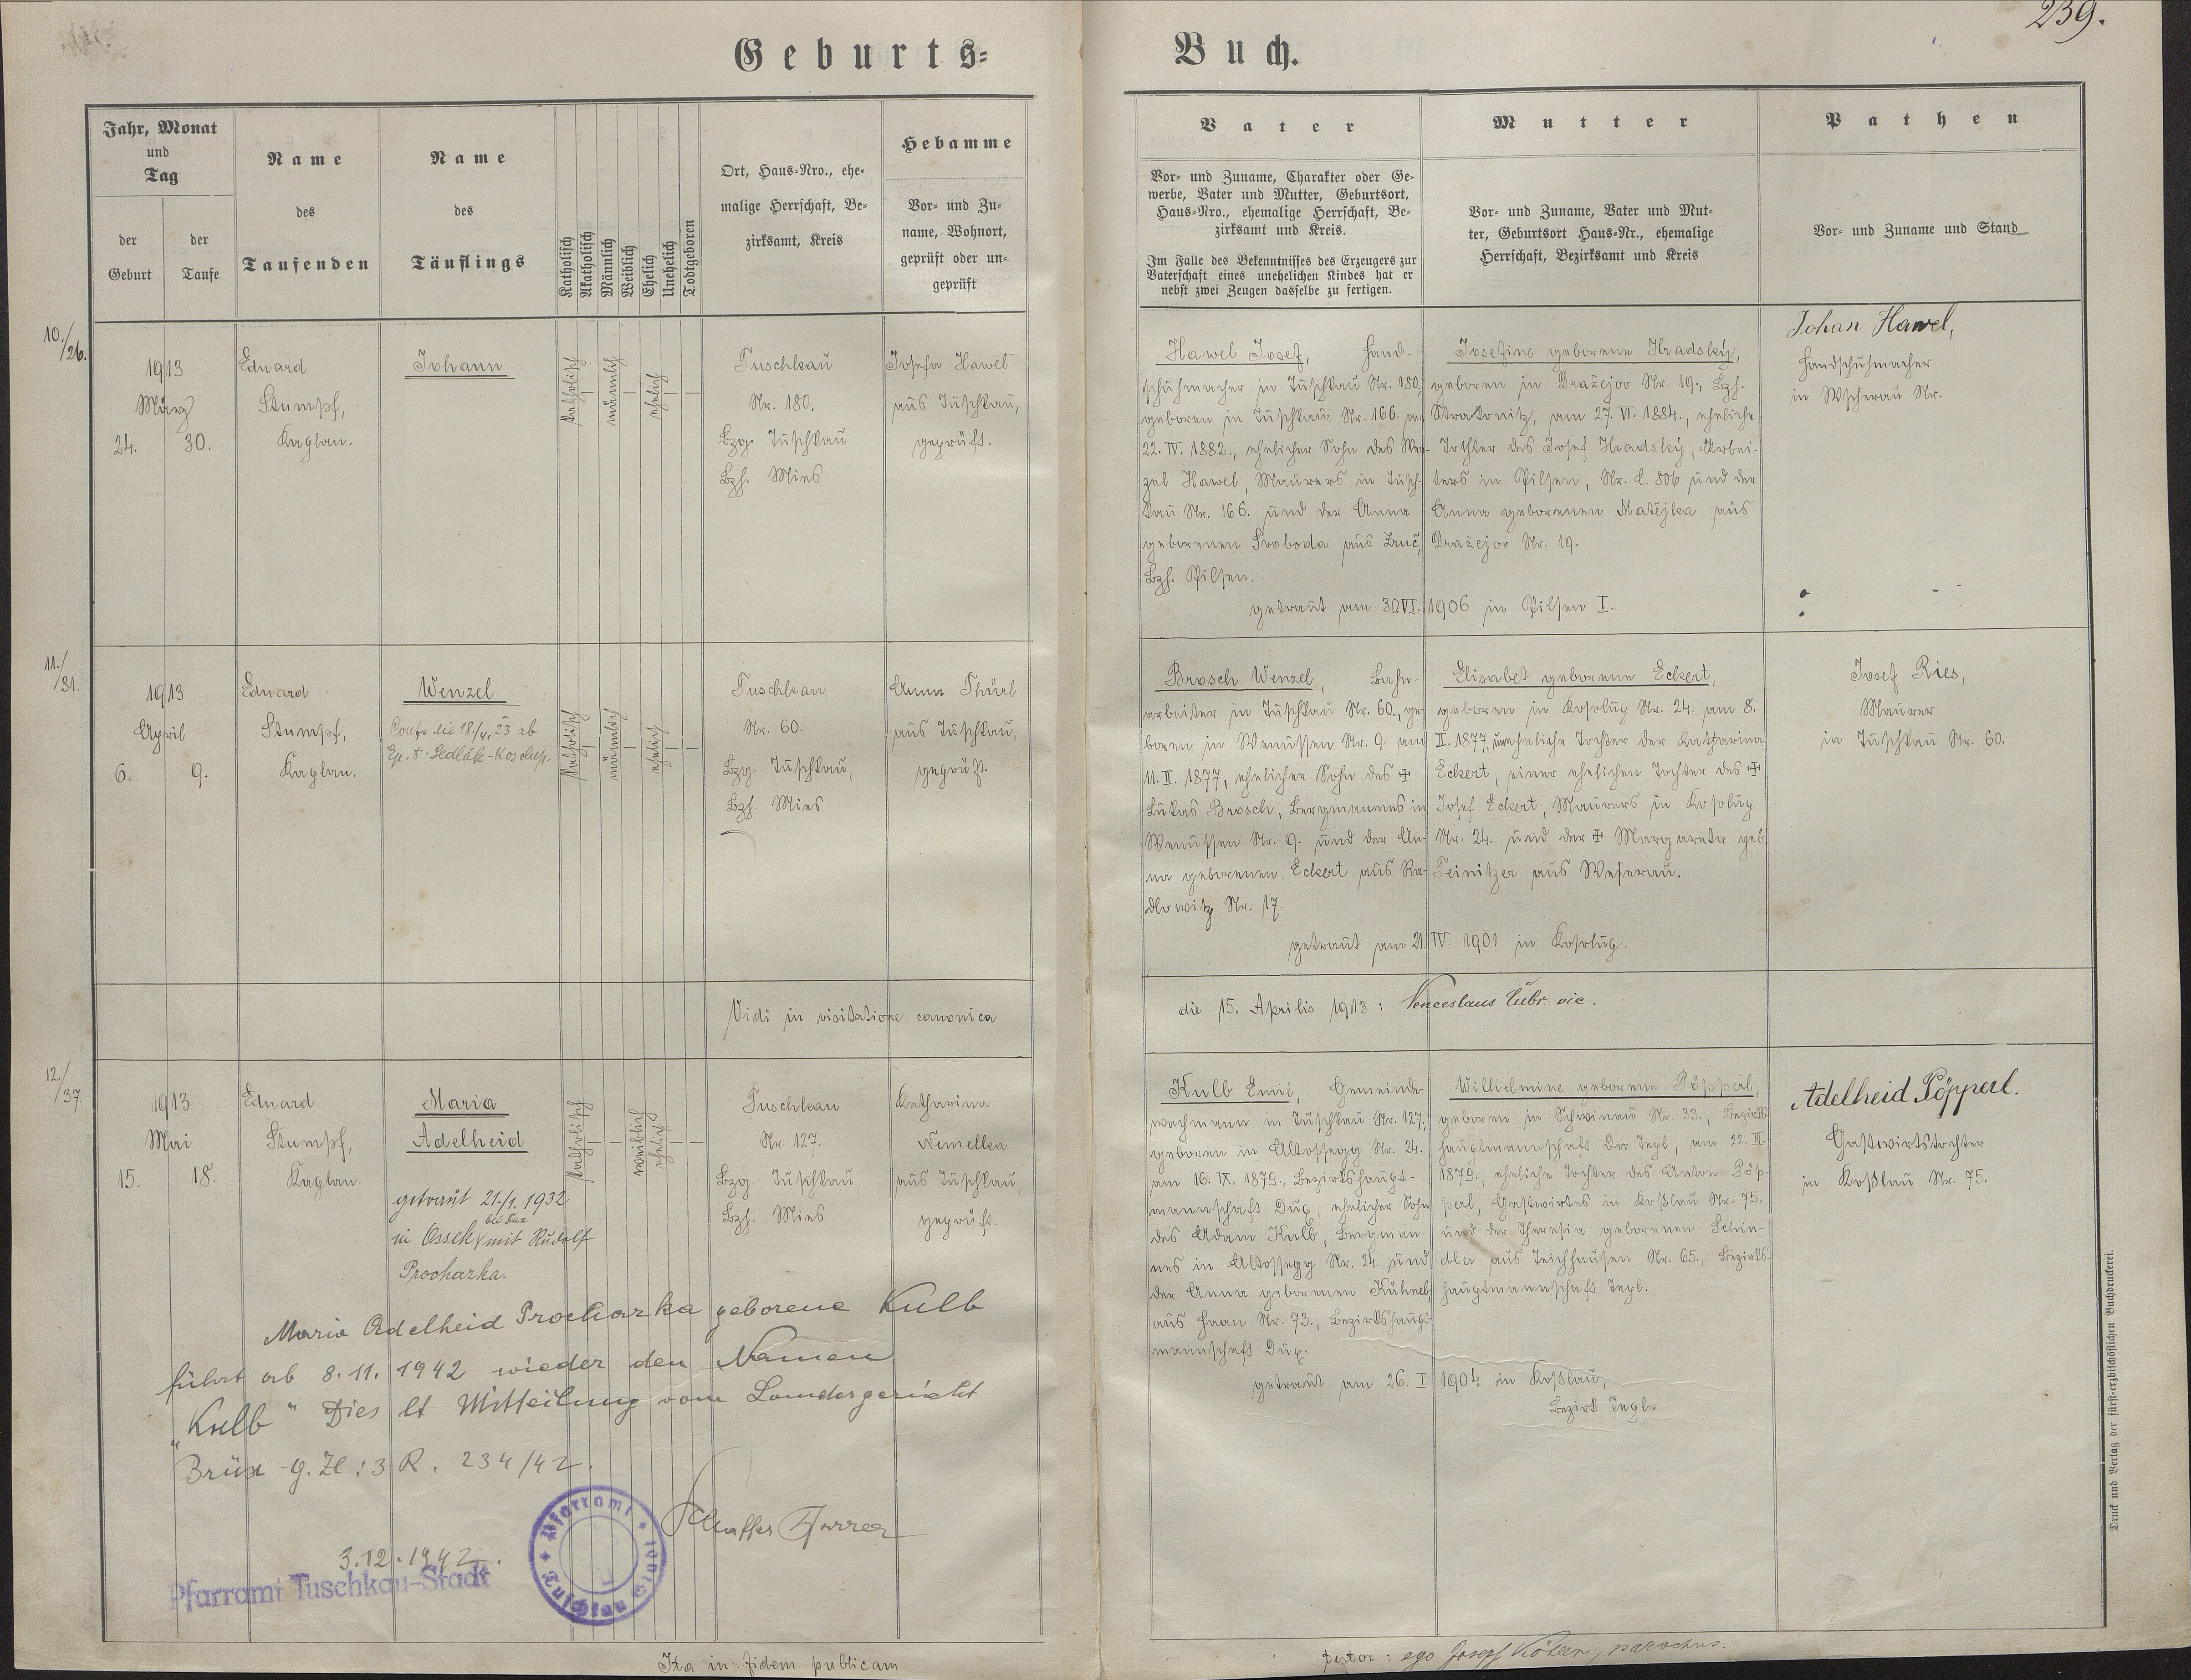 239.
Geburts-Buch.
Jahr, Monat
und
Tag
der
Geburt
der
Taufe
Name
des
Taufenden
Name
des
Täuflings
Katholisch
Akatholisch
Männlich
Weiblich
Ehelich
Unehelich
Todtgeboren
Ort, Haus-Nro., ehe-
malige Herrschaft, Be-
zirksamt, Kreis
Hebamme
Vor- und Zu-
name, Wohnort,
geprüft oder un-
geprüft
Vater
Vor- und Zuname, Charakter oder Ge-
werbe, Vater und Mutter, Geburtsort,
Haus-Nro., ehemalige Herrschaft, Be-
zirksamt und Kreis.
Im Falle des Bekenntnisses des Erzeugers zur
Vaterschaft eines unehelichen Kindes hat er
nebst zwei Zeugen dasselbe zu fertigen.
Mutter
Vor- und Zuname, Vater und Mut-
ter, Geburtsort Haus-Nr., ehemalige
Herrschaft, Bezirksamt und Kreis
Pathen
Vor- und Zuname und Stand
10./26.
1913
März
24. 30.
Eduard
Stumpf,
Kaplan.
Johann
katholisch
männlich
ehelich
Tuschkau
Nr. 180.
Bzg. Tuschkau
Bzh. Mies
Josefa Hawel
aus Tuschkau,
geprüft.
Hawel Josef, Hand-
schuhmacher in Tuschkau Nr. 180,
geboren in Tuschkau Nr. 166. am
22. IV. 1882., ehelicher Sohn des Wen-
zel Hawel, Maurers in Tusch-
kau Nr. 166. und der Anna
geborenen Svoboda aus Zruč,
Bzh. Pilsen.
Josefine geborene Hradský,
geboren in Dražejov Nr. 19., Bzh.
Strakonitz, am 27. VI. 1884., eheliche
Tochter des Josef Hradský, Arbei-
ters in Pilsen, Nr. C. 806 und der
Anna geborenen Matějka aus
Dražejov Nr. 19.
getraut am 30 VI. 1906 in Pilsen I.
Johan Hawel,
Handschuhmacher
in Wscherau Nr.
11./31.
1913
April
6. 9.
Eduard
Stumpf,
Kaplan.
Wenzel
18./4. 23 ab
Ep. + Sedlák-Kosolup.
katholisch
männlich
ehelich
Tuschkau
Nr. 60.
Bzg. Tuschkau,
Bzh. Mies
Anna Thürl
aus Tuschkau,
geprüft.
Brosch Wenzel, Bahn-
arbeiter in Tuschkau Nr. 60., ge-
boren in Wenussen Nr. 9. am
11. II. 1877, ehelicher Sohn des ✠
Lukas Brosch, Bergmannes in
Wenussen Nr. 9. und der An-
na geborenen Eckert aus Ra-
dlowitz Nr. 17.
Elisabet geborene Eckert,
geboren in Kosolup Nr. 24. am 8.
II. 1877, uneheliche Tochter der Katharina
Eckert, einer ehelichen Tochter des ✠
Josef Eckert, Maurers in Kosolup
Nr. 24. und der ✠ Margareta geb.
Teinitzer aus Weserau.
getraut am 21. IV. 1901 in Kosolup.
Josef Ries,
Maurer
in Tuschkau Nr. 60.
Vidi in visitatione canonica
die 15. Aprilis 1913: Venceslaus Cubr vic.
12./37.
1913
Mai
15. 18.
Eduard
Stumpf,
Kaplan.
Maria
Adelheid
getraut 21./1. 1932
bei Dux
in Ossek mit Rudolf
Prochazka.
katholisch
weiblich
ehelich
Tuschkau
Nr. 127.
Bzg. Tuschkau
Bzh. Mies
Katharina
Nemelka
aus Tuschkau,
geprüft.
Kulb Emil, Gemeinde-
wachmann in Tuschkau Nr. 127.;
geboren in Altossegg Nr. 24.
am 16. IX. 1879., Bezirkshaupt-
mannschaft Dux, ehelicher Sohn
des Adam Kulb, Bergman-
nes in Altossegg Nr. 24. und
der Anna geborenen Kühnel,
aus Haan Nr. 73., Bezirkshaupt
mannschaft Dux.
Wilhelmine geborene Pöpperl,
geboren in Schwinau Nr. 33., Bezirks-
hauptmannschaft Tepl, am 22. III.
1879., eheliche Tochter des Anton Pöp-
perl, Gastwirtes in Koßlau Nr. 75.
und der Theresia geborenen Schin-
dler aus Teichhausen Nr. 65., Bezirks-
hauptmannschaft Tepl.
getraut am 26. I 1904 in Koßlau,
Bezirk Tepl.
Adelheid Pöpperl.
Gastwirtstochter
in Koßlau Nr. 75.
Maria Adelheid Prochazka geborene Kulb
führt ab 8. 11. 1942 wieder den Namen
„Kulb" Dies lt Mitteilung vom Landesgericht
Brüx g. Zl: 3 R. 234/42.
Pfarrer
3.12.1942.
Pfarramt Tuschkau-Stadt
Pfarramt Tuschkau Stadt
Ita in fidem publicam
testor: ego Josef Köhler, parochus.
Druck und Verlag der fürst-erzbischöflichen Buchdruckerei.